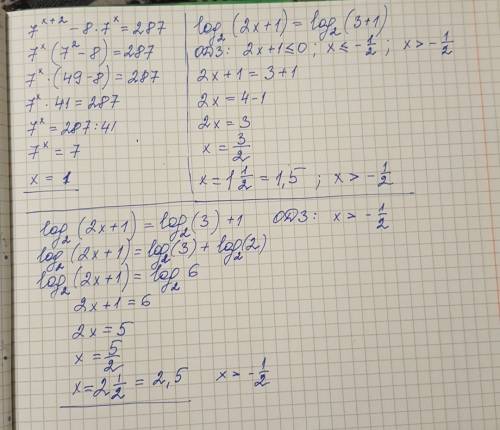 7^{x+2} - 8·7^x = 287
7^x (7^2 - 8) = 287
7^x · (49 - 8) = 287
7^x · 41 = 287
7^x = 287 : 41
7^x = 7
x = 1
log_2 (2x+1) = log_2 (3+1)
ОДЗ: 2x+1 ≤ 0 ; x ≤ -\frac{1}{2} ; x > -\frac{1}{2}
2x+1 = 3+1
2x = 4-1
2x = 3
x = \frac{3}{2}
x = 1\frac{1}{2} = 1,5 ; x > -\frac{1}{2}
log_2 (2x+1) = log_2 (3) + 1 ОДЗ: x > -\frac{1}{2}
log_2 (2x+1) = log_2 (3) + log_2 (2)
log_2 (2x+1) = log_2 6
2x+1 = 6
2x = 5
x = \frac{5}{2}
x = 2\frac{1}{2} = 2,5 x > -\frac{1}{2}